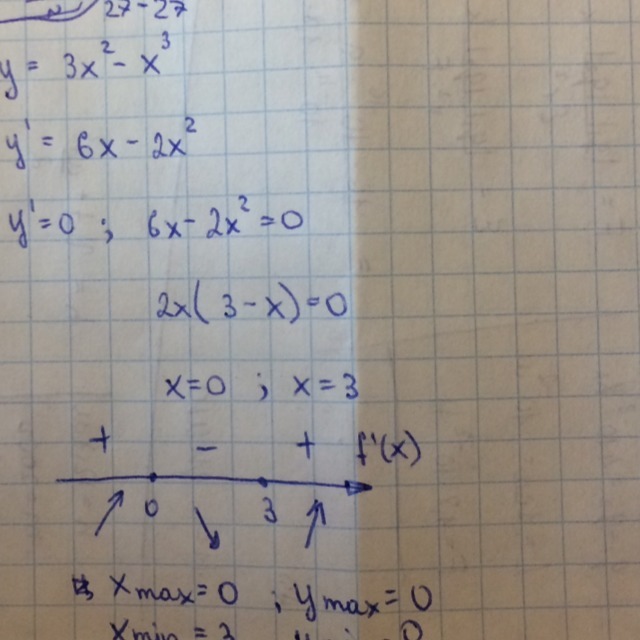 27-27
y = 3x² - x³
y' = 6x - 2x²
y'=0 ; 6x-2x²=0
2x(3-x)=0
x=0 ; x=3
+ - + f'(x)
0 3
x max=0 ; y max=0
x min=3 0